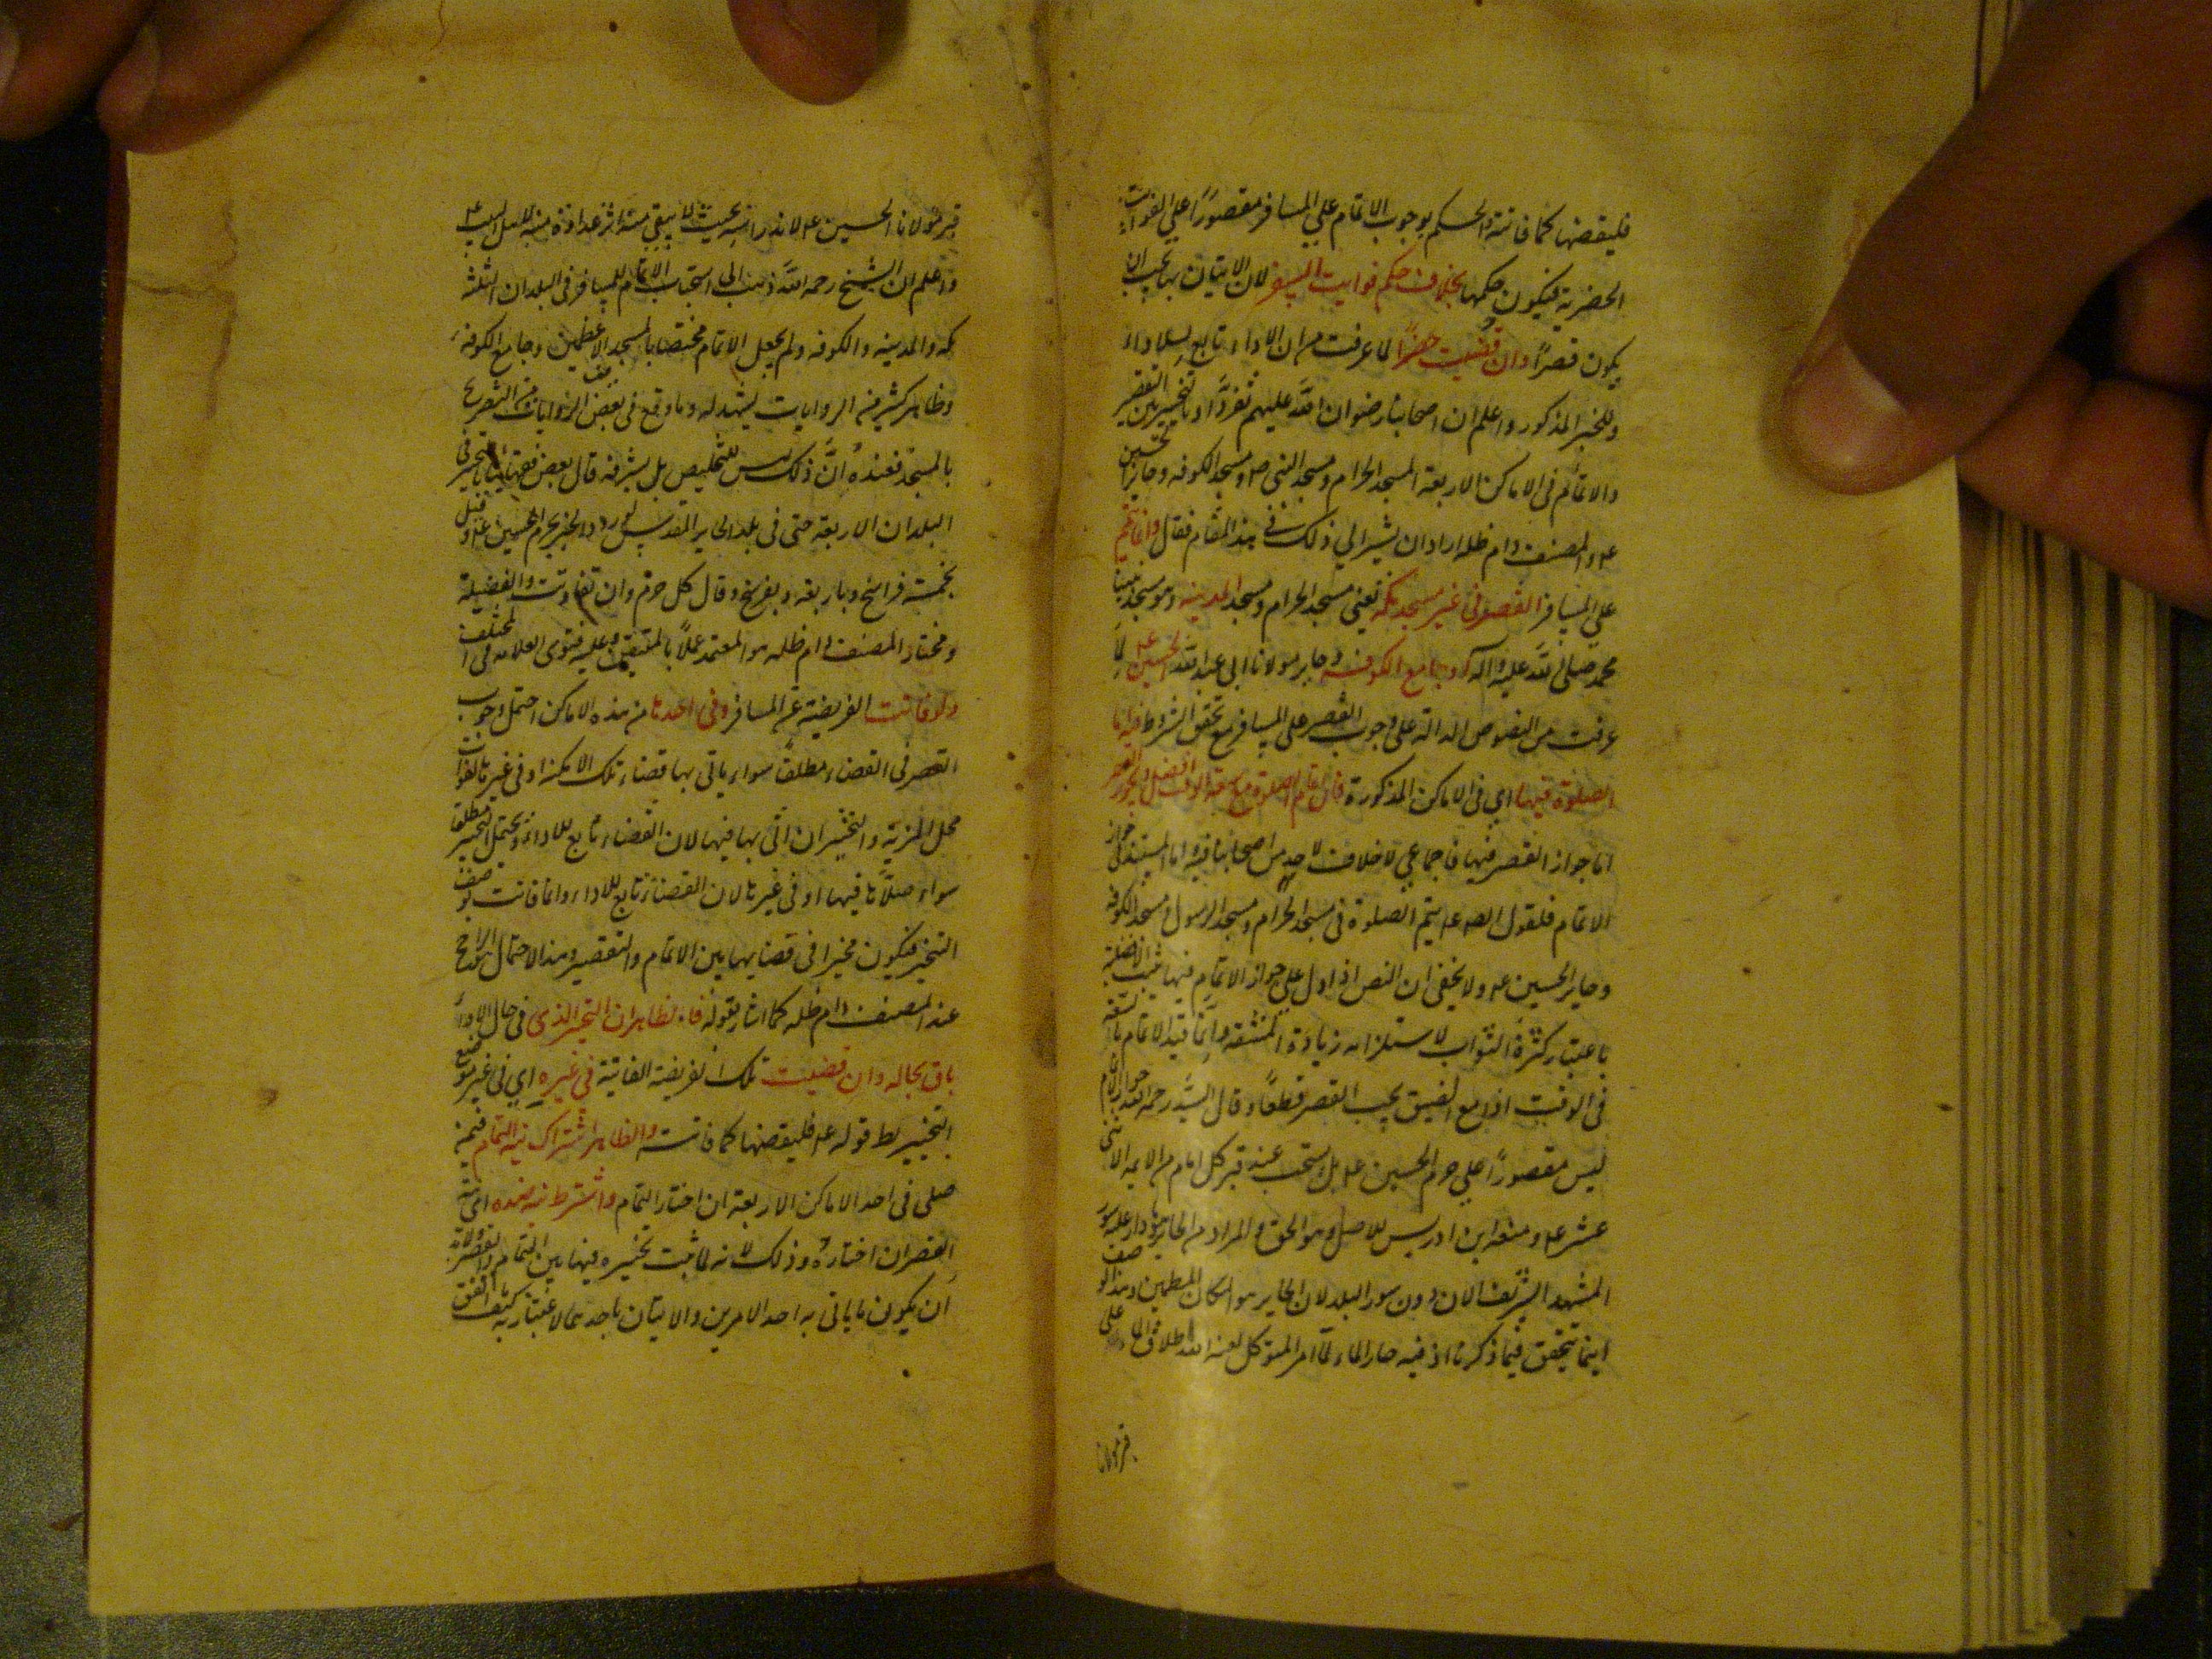 فليقضها كما فاتته والحكم بوجوب الاتمام على المسافر مقصورًا على الفوائت
الحضرية فيكون حكمها بخلاف حكم فوايت السفر لان الاتيان بها يجب ان
يكون قصرًا وان قضيت حضرًا لما عرفت من ان الاداء تابع
وللخبر المذكور واعلم ان اصحابنا رضوان الله عليهم تفردوا بالتخيير بين التقصير
والاتمام في الاماكن الاربعة المسجد الحرام ومسجد النبي ص ومسجد الكوفه وحاير الحسين
ع والمصنف دام ظله اراد ان يشير الي ذلك في هذا المقام فقال وانما يتحتم
علي المسافر القصر في غير مسجد مكه يعني مسجد الحرام ومسجد المدينه وهو مسجد نبينا
محمد صلى الله عليه وآله وجامع الكوفه وحاير مولانا ابي عبد الله الحسين ع لما
عرفت من النصوص الدالة على وجوب القصر على المسافر مع تحقق الشروط
الصلوة فيها اي في الاماكن المذكورة فان اتمام الصلوة مع سعة الوقت افضل ويجوز القصر
اما جواز القصر فيها فاجماعي لا خلاف لاحد من اصحابنا فيه واما المستند في جواز
الاتمام فلقول الص ع يتم الصلوة في مسجد الحرام ومسجد الرسول ومسجد الكوفة
وحاير الحسين ع ولا يخفى ان النص اذا دل على جواز الاتمام فيها ثبت الافضلية
باعتبار كثرة الثواب لاستلزامه زيادة المشقة وانما قيد الاتمام بالسعة
في الوقت اذ مع الضيق يجب القصر قطعًا وقال السيد رحمه الله جواز الاتمام
ليس مقصورًا على حرم الحسين ع بل يستحب عند قبر كل امام من الايمه الاثني
عشر ع ومنعه ابن ادريس للاصل وهو الحق والمراد من الحاير ما دار عليه سور
المشهد الشريف الان دون سور البلد لان الحاير هو المكان المطمئن وهذا الوصف
انما يتحقق فيما ذكرنا اذ فيه حار الماء لما امر المتوكل لعنه الله باطلاق الماء على
قبر مولانا
قبر مولانا الحسين ع لاندراسه بحيث لا يبقى منه اثر عداوة منه لاهل البيت ع
واعلم ان الشيخ رحمه الله ذهب الى استحباب الاتمام للمسافر في البلدان الثلثة
مكه والمدينه والكوفه ولم يجعل الاتمام مختصا بالمسجد الاعظمين وجامع الكوفة
وظاهر كثير من الروايات يشهد له وما وقع في بعض الروايات من التصريح
بالمسجد فعنده انّ ذلك ليس للتخصيص بل لشرفه قال بعض فقهائنا بالتخيير في
البلدان الاربعة حتى في بلد الحاير المقدس لورود الخبر بحرم الحسين ع وقيل
بخمسة فراسخ وباربعة وبفرسخ وقال كل حرم وان تفاوتت والفضيلة
ومختار المصنف دام ظله هو المعتمد عملًا بالمتيقن وعليه فتوى العلامه في المختلف
ولو فاتت الفريضة عن المسافر وفي احدها من هذه الاماكن احتمل وجوب
القصر في القضاء مطلقًا سواء ياتي بها قضاء تلك الامكنة او في غيرها لفوات
محل المزية والتخيير ان اتى بها فيها لان القضاء تابع للاداء ويحتمل التخيير مطلقا
سواء صلّاها فيها او في غيرها لان القضاء تابع للاداء وانما فاتت بوصف
التخيير فيكون مخيرا في قضايها بين الاتمام والتقصير وهذا الاحتمال هو الراجح
عند المصنف دام ظله كما اشار بقوله فالظاهر ان التخيير الذي في حال الاداء
باق بحاله وان قضيت تلك الفريضه الفائتة في غيره اي في غير موضع
التخيير لظ قوله ع فليقضها كما فاتته والظاهر اشتراك نية التمام فيمن
صلى في احد الاماكن الاربعة ان اختار التمام واشترط نية ضده اي نية
القصر ان اختاره وذلك لانه لما ثبت تخييره فيها بين التمام والقصر ولابد
ان يكون ما ياتي به احد الامرين والاتيان باحدهما لا اعتبار به كيف اتفق